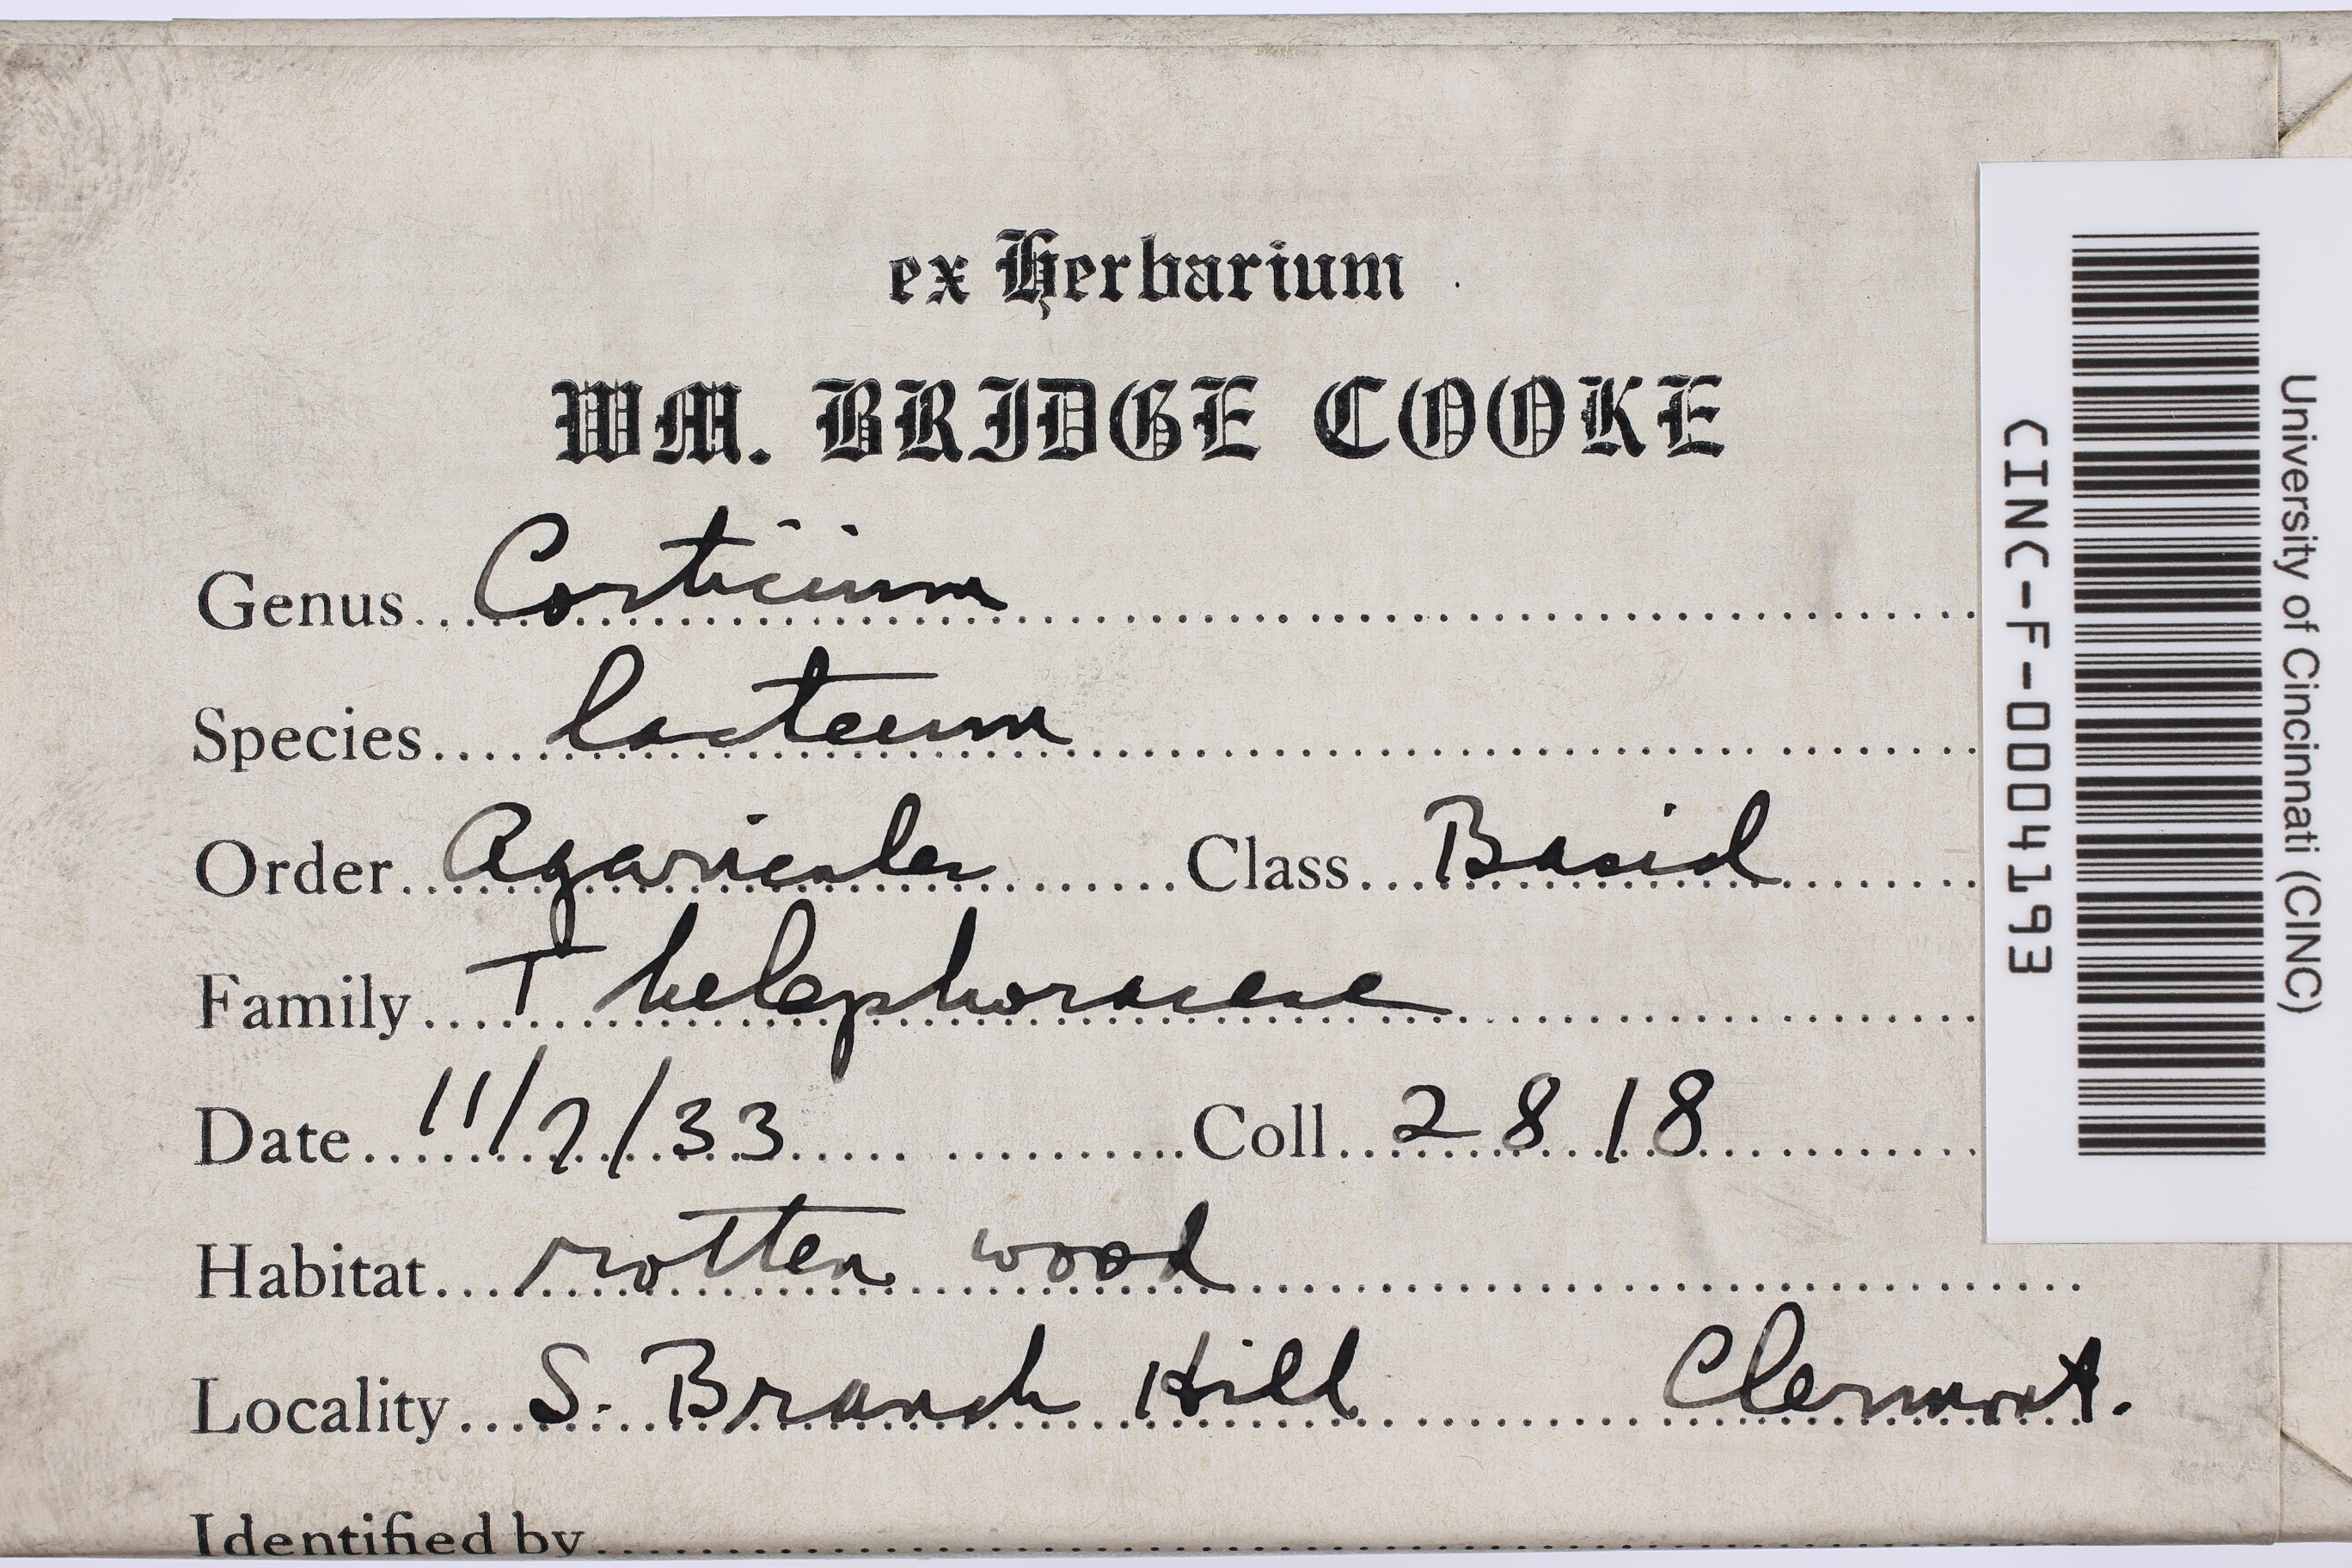 ex Herbarium
WM. BRIDGE COOKE
Genus Corticium
Species lacteum
Order Agaricales Class Basid
Family Thelephoraceae
Date 11/7/33 Coll. 2818
Habitat rotten wood
Locality S. Branch Hill Clermont.
Identified by
University of Cincinnati (CINC)
CINC-F-0004193